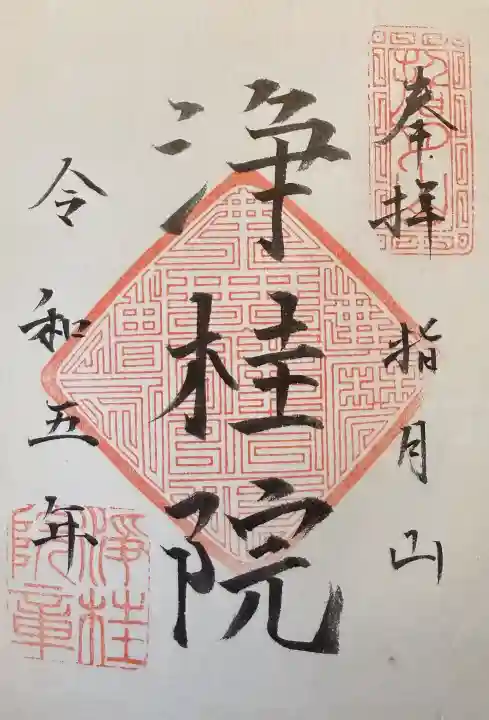 奉拝
指月山
浄桂院
令和五年
浄桂
院章